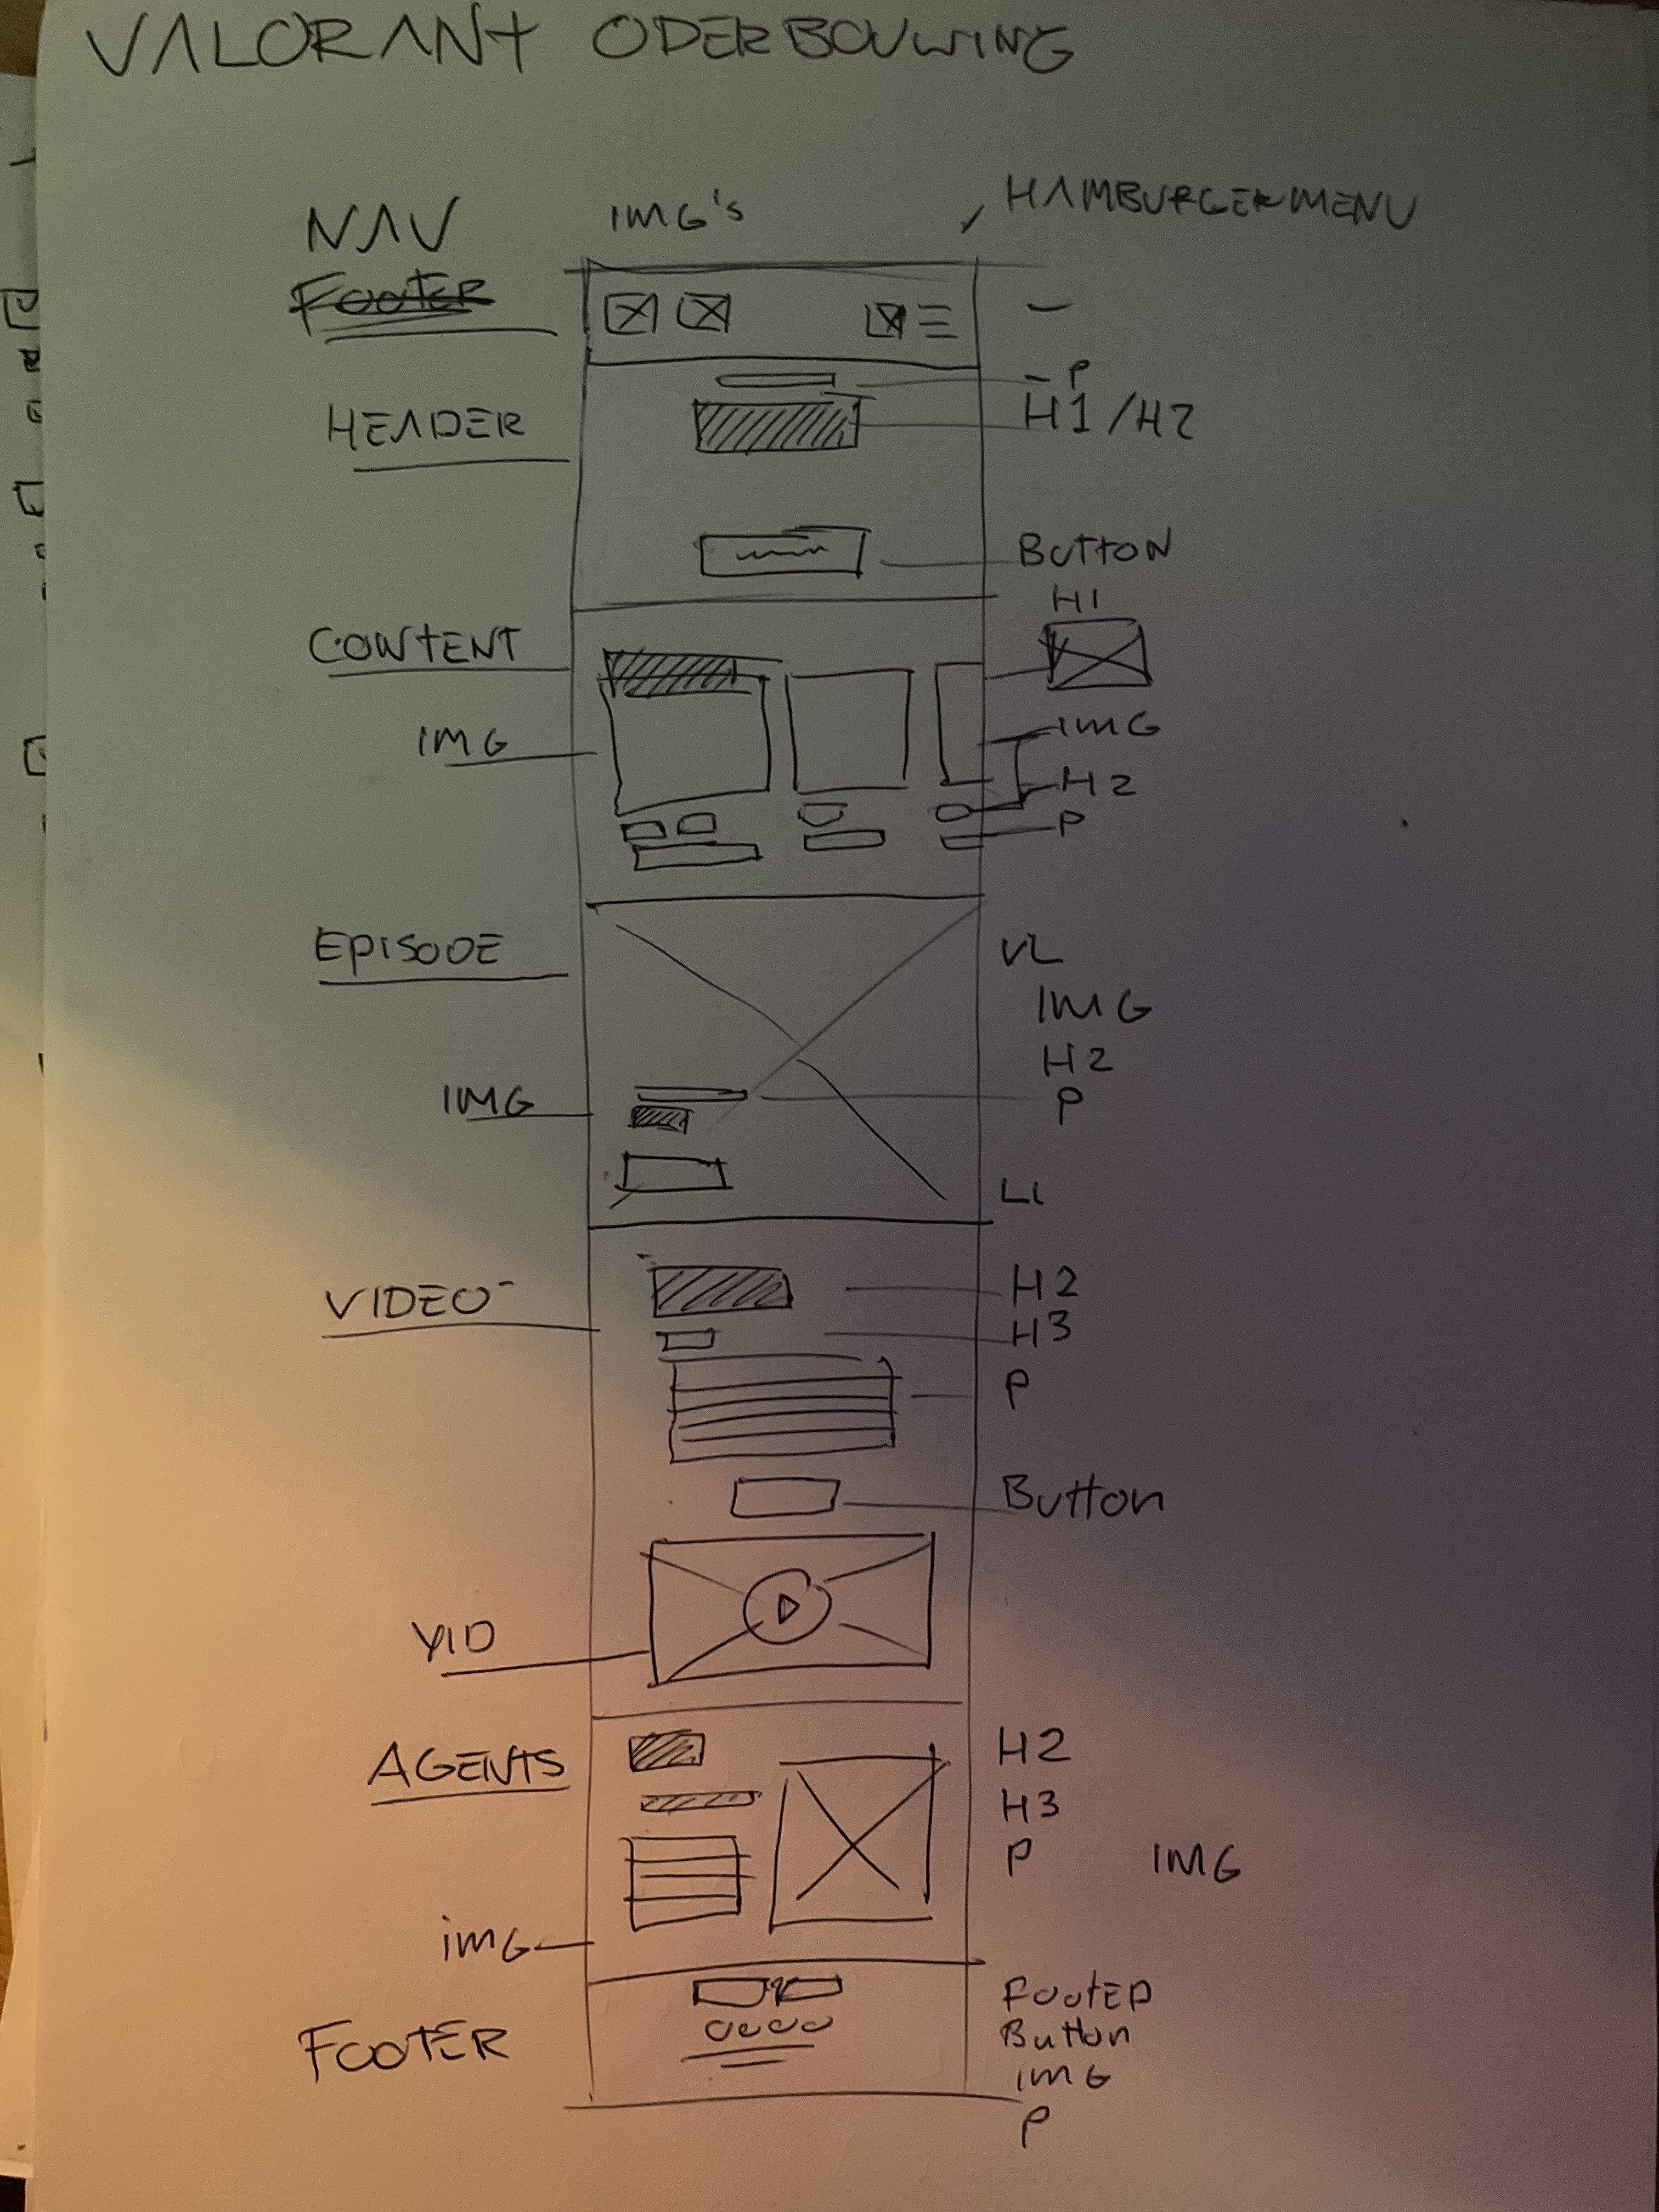 VALORANT ODERBOUWING
NAV
IMG's
HAMBURGERMENU
FOOTER
P
HEADER
H1/H2
BUTTON
CONTENT
H1
IMG
IMG
H2
P
EPISODE
VL
IMG
H2
IMG
P
LI
VIDEO
H2
H3
P
Button
VID
AGENTS
H2
H3
P IMG
imG
FOOTER
FOOTER
Button
IMG
P